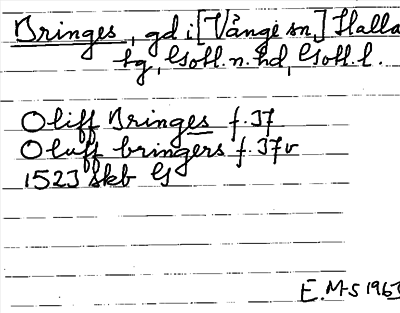 Bringes, gd i [Vänge sn] Halla
tg, Gotl. n. hd, Gotl. l.
Oliff Bringes f. 37
Oluff bringers f. 37v
1523 Skb G
E. M-s 1963